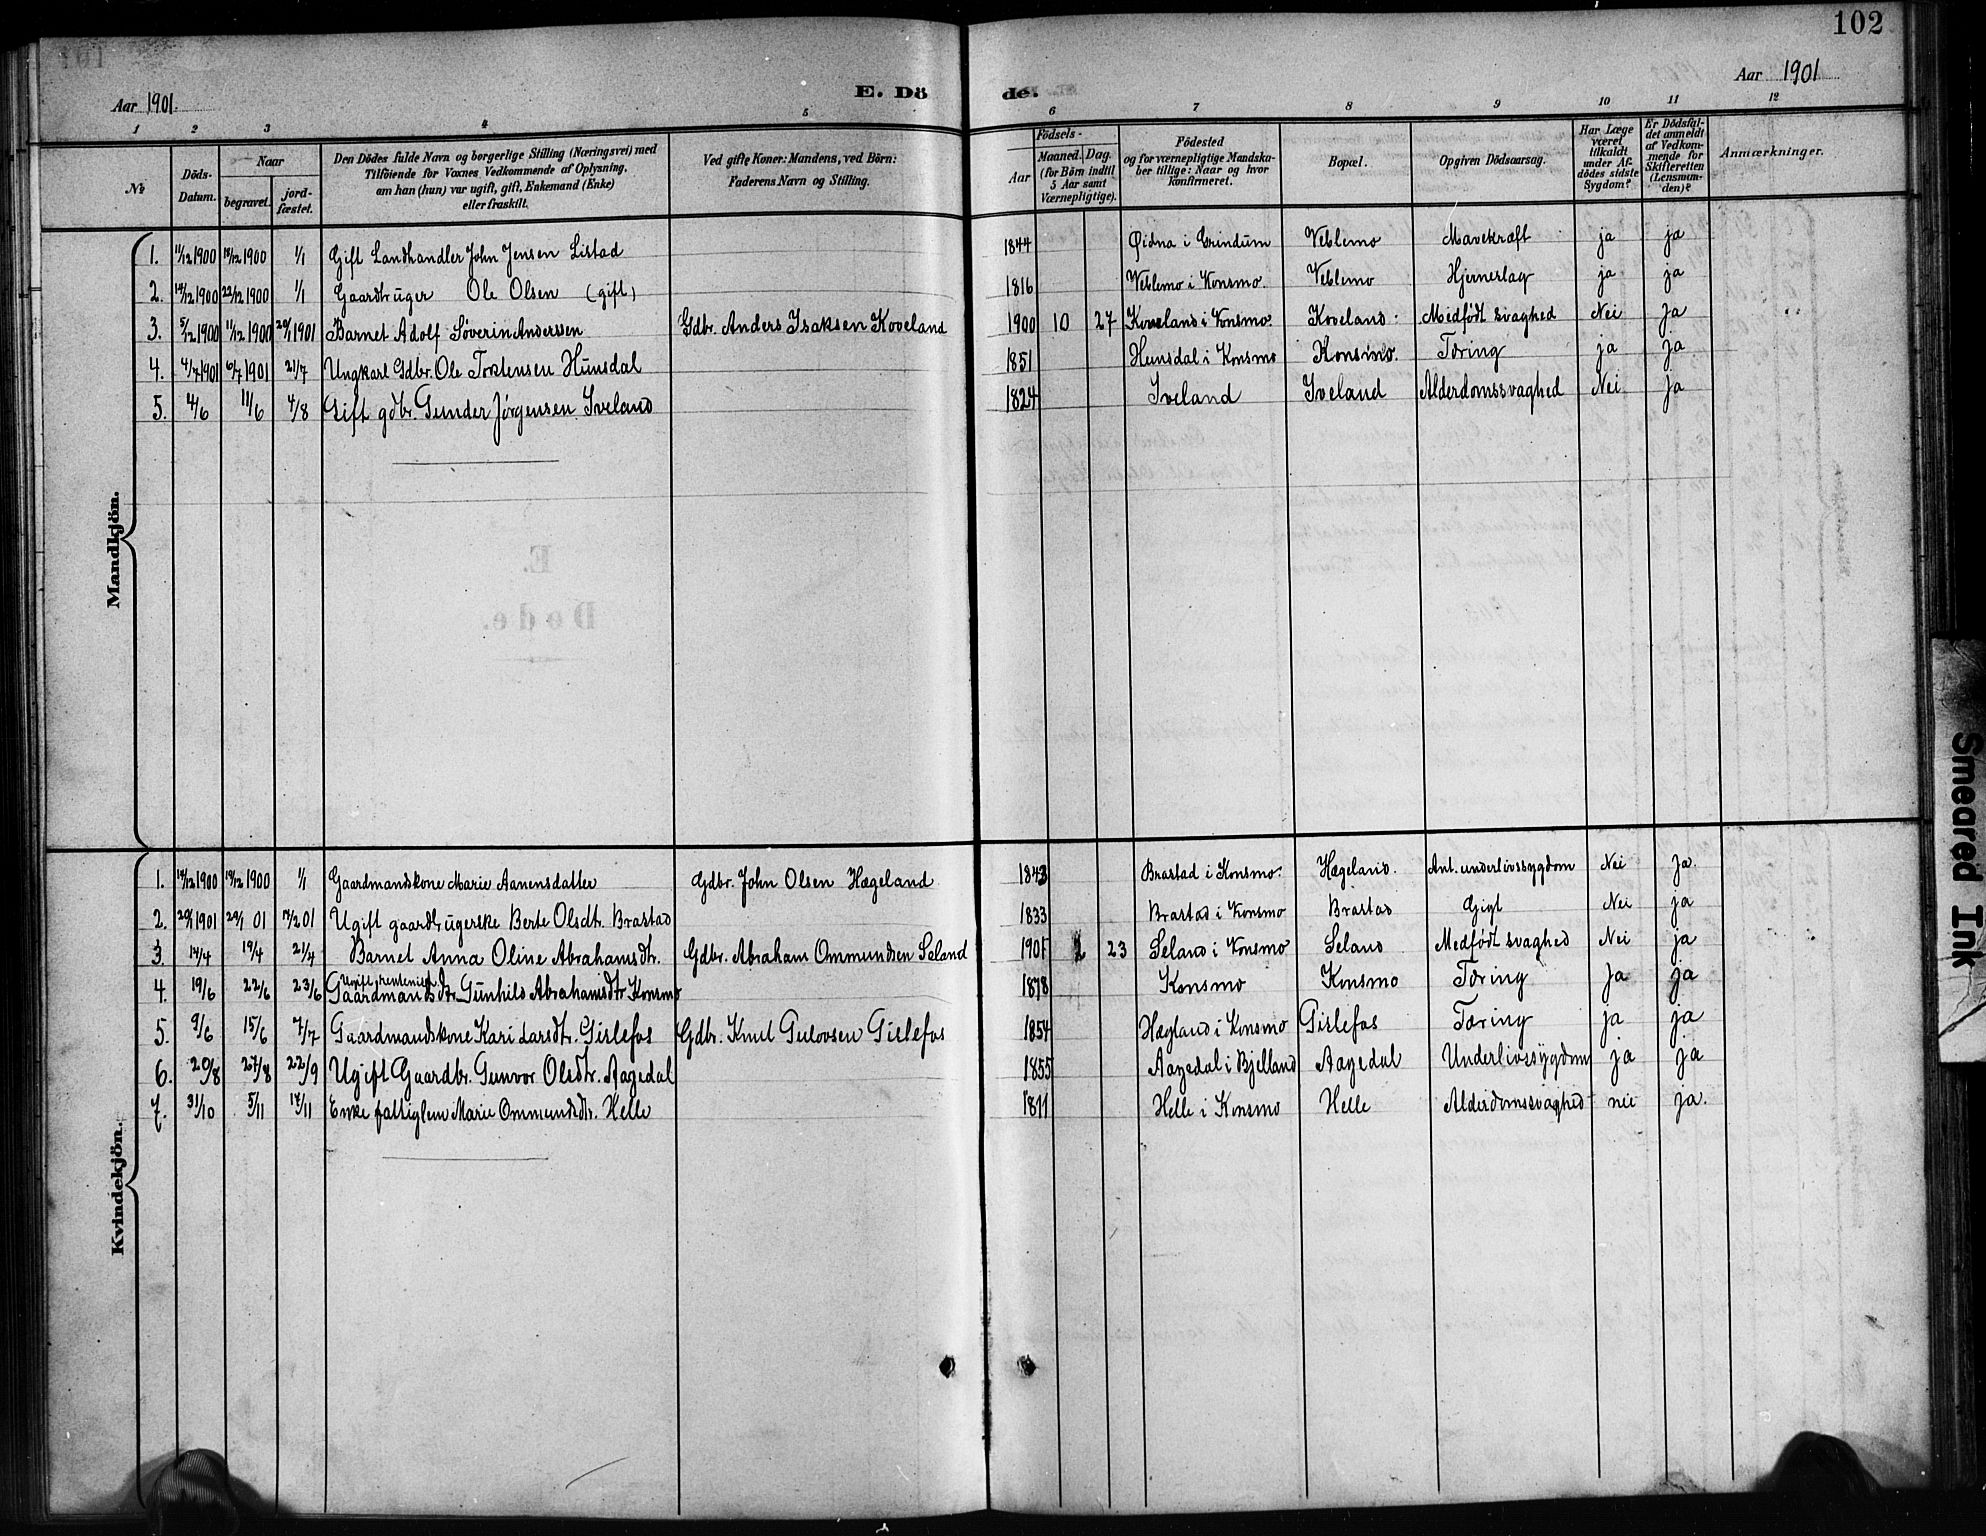 102
Aar 1901.
E. Dö
de.
Aar 1901
1 2 3 4 5 6 7 8 9 10 11 12
№ | Döds-Datum. | Naar begravet. | jord-fæstet. | Den Dödes fulde Navn og borgerlige Stilling (Næringsvei) med Tilföiende for Voxnes Vedkommende af Oplysning, om han (hun) var ugift, gift, Enkemand (Enke) eller fraskilt. | Ved gifte Koner: Mandens, ved Börn: Faderens Navn og Stilling. | Födsels- Aar | Maaned. | Dag. (for Börn indtil 5 Aar samt Værnepligtige). | Födested og for værnepligtige Mandskaber tillige: Naar og hvor konfirmeret. | Bopæl. | Opgiven Dödsaarsag. | Har Læge været tilkaldt under Afdödes sidste Sygdom? | Er Dödsfaldet anmeldt af Vedkommende for Skifteretten (Lensmanden)? | Anmærkninger.
Mandkjön.
1. 11/12 1900 18/12 1900 1/1 Gift Landhandler John Jensen Listad 1844 Øidna i Grindum Veblemo Mavekræft ja ja
2. 14/12 1900 22/12 1900 1/1 Gaardbruger Ole Olsen (gift) 1816 Veblemo i Konsmo. Veblemo Hjerneslag ja ja
3. 5/12 1900 11/12 1900 20/1 1901 Barnet Adolf Søverin Anderssen Gdbr. Anders Isaksen Koveland 1900 10 27 Koveland i Konsmo. Koveland. Medfødt svaghed Nei Ja
4. 4/7 1901 6/7 1901 21/7 Ungkarl Gdbr. Ole Torstensen Hunsdal 1851 Hunsdal i Konsmo Konsmo. Tæring ja ja
5. 4/6 11/6 4/8 Gift gdbr. Gunder Jørgensen Iveland 1824 Iveland Iveland Alderdomssvaghed Nei Ja
Kvindekjön.
1. 14/12 1900 19/12 1900 1/1 Gaardmandskone Marie Aanensdatter Gdbr. John Olsen Hægeland 1843 Brastad i Konsmo. Hægeland. Ant. underlivssygdom Nei Ja.
2. 20/1 1901 29/1 01 17/2 01 Ugift gaardbrugerske Berte Olsdtr. Brastad 1833 Brastad i Konsmo Brastad Gigt Nei ja
3. 14/4 19/4 21/4 Barnet Anna Oline Abrahamsdtr. Gdbr. Abraham Ommundsen Seland 1901 23 Seland i Konsmo Seland Medfødt svaghed Nei ja
4. 19/6 22/6 23/6 Ugift Gaardmandsdtr. Gunhild Abrahamsdtr Konsmo 1878 Konsmo Konsmo Tæring Ja ja
5. 9/6 15/6 7/7 Gaardmandskone Kari Larsdtr. Gislefos Gdbr. Knut Gulovsen Gislefos 1854 Hægland i Konsmo Gislefos Tæring ja ja
6. 20/8 27/8 22/9 Ugift Gaardbr. Gunvor Olsdtr. Aagedal 1855 Aagedal i Bjelland Aagedal Underlivssygdom ja ja
7. 31/10 5/11 17/11 Enke fattiglem Marie Ommundsdtr. Helle 1811 Helle i Konsmo Helle Alderdomssvaghed nei ja.
Smeared Ink